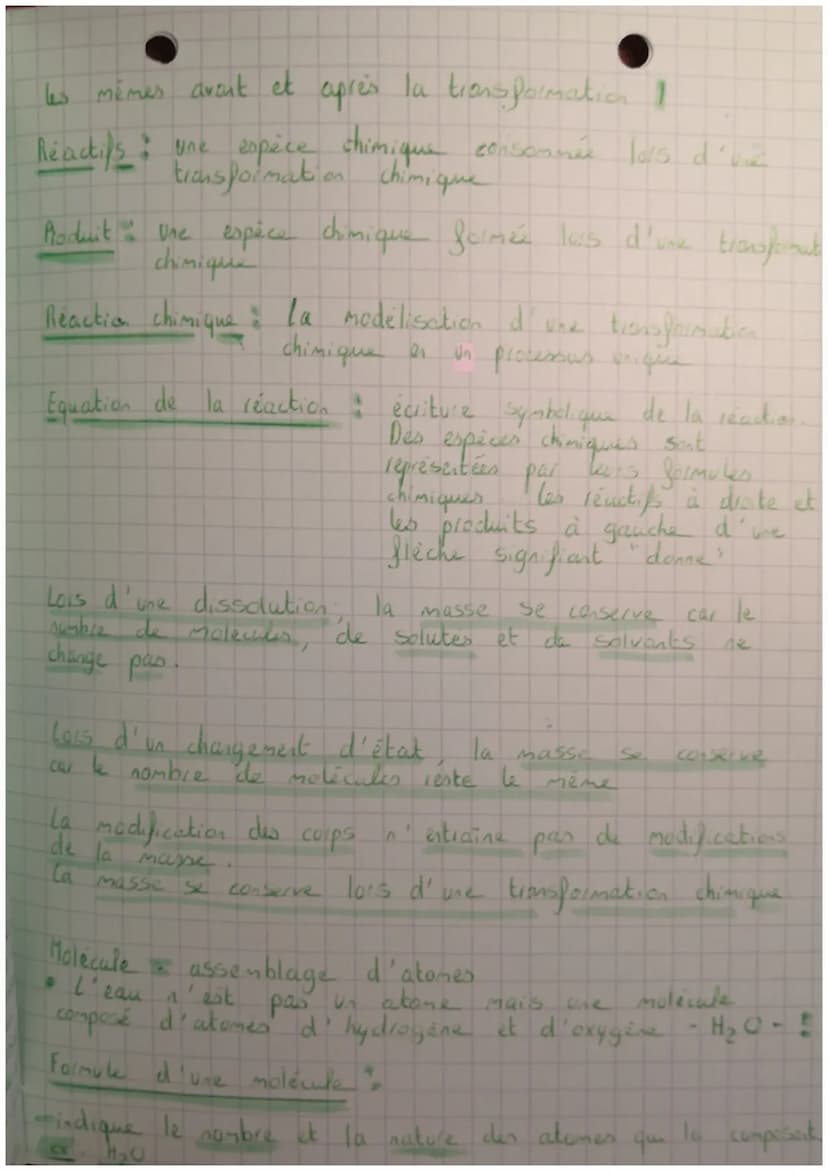 les mêmes avant et après la transformation !
Réactifs : une espèce chimique consommée lors d'une
transformation chimique
Produit : une espèce chimique formée lors d'une transformat
chimique
Réaction chimique : La modélisation d'une transformation
chimique en un processus unique
Equation de la réaction : écriture symbolique de la réaction.
Des espèces chimiques sont
représentées par leurs formules
chimiques les réactifs à droite et
les produits à gauche d'une
flèche signifiant "donne"
Lors d'une dissolution, la masse se conserve car le
nombre de molécules, de solutés et de solvants ne
change pas.
Lors d'un changement d'état, la masse se conserve
car le nombre de molécules reste le même
La modification des corps n'entraîne pas de modifications
de la masse.
La masse se conserve lors d'une transformation chimique
Molécule = assemblage d'atomes
• L'eau n'est pas un atome mais une molécule
composé d'atomes d'hydrogène et d'oxygène - H₂O - !
Formule d'une molécule :
- indique le nombre et la nature des atomes qui la composent.
ex : H₂O